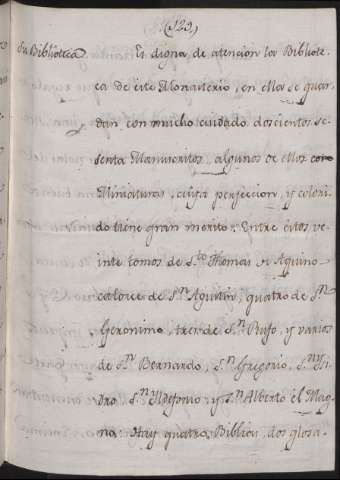 (129)
Su Biblioteca. Es digna de atencion la Bibliote
ca de este Monasterio, en ella se guar
dan con mucho cuidado doscientos se
senta Manuscritos, algunos de ellos con
Miniaturas, cuya perfeccion, y colori
do tiene gran merito. Entre estos ve
inte tomos de S.to Thomas de Aquino
catorce de S.n Agustin, quatro de S.n
Geronimo, tres de S.n Rufo, y varios
de S.n Bernardo, S.n Gregorio, S.n Ysi
dro, S.n Yldefonso, y S.n Alberto el Mag
no. Hay quatro Biblias, dos glosa-